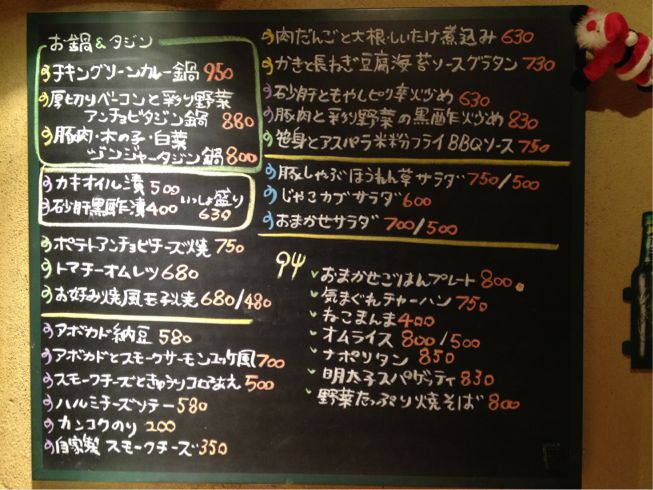 お鍋&タジン
チキングリーンカレー鍋 950
厚切りベーコンと彩り野菜
アンチョビタジン鍋 880
豚肉・木の子・白菜
ジンジャータジン鍋 800
カキオイル漬 500
砂肝黒酢漬 400
いっしょ盛り
630
ポテトアンチョビチーズ焼 750
トマチーオムレツ 680
お好み焼風玉子焼 680/480
アボカド納豆 580
アボカドとスモークサーモンユッケ風 700
スモークチーズときゅうりコロコロあえ 500
ハルミチーズソテー 580
カンコクのり 200
自家製 スモークチーズ 350
肉だんごと大根・しいたけ煮込み 630
かきと長ねぎ豆腐海苔ソースグラタン 730
砂肝ともやしピリ辛炒め 630
豚肉と彩り野菜の黒酢炒め 830
笹身とアスパラ米粉フライBBQソース 750
豚しゃぶほうれん草サラダ 750/500
じゃこカブサラダ 600
おまかせサラダ 700/500
おまかせごはんプレート 800
気まぐれチャーハン 750
ねこまんま 400
オムライス 800/500
ナポリタン 850
明太子スパゲッティ 830
野菜たっぷり焼そば 800